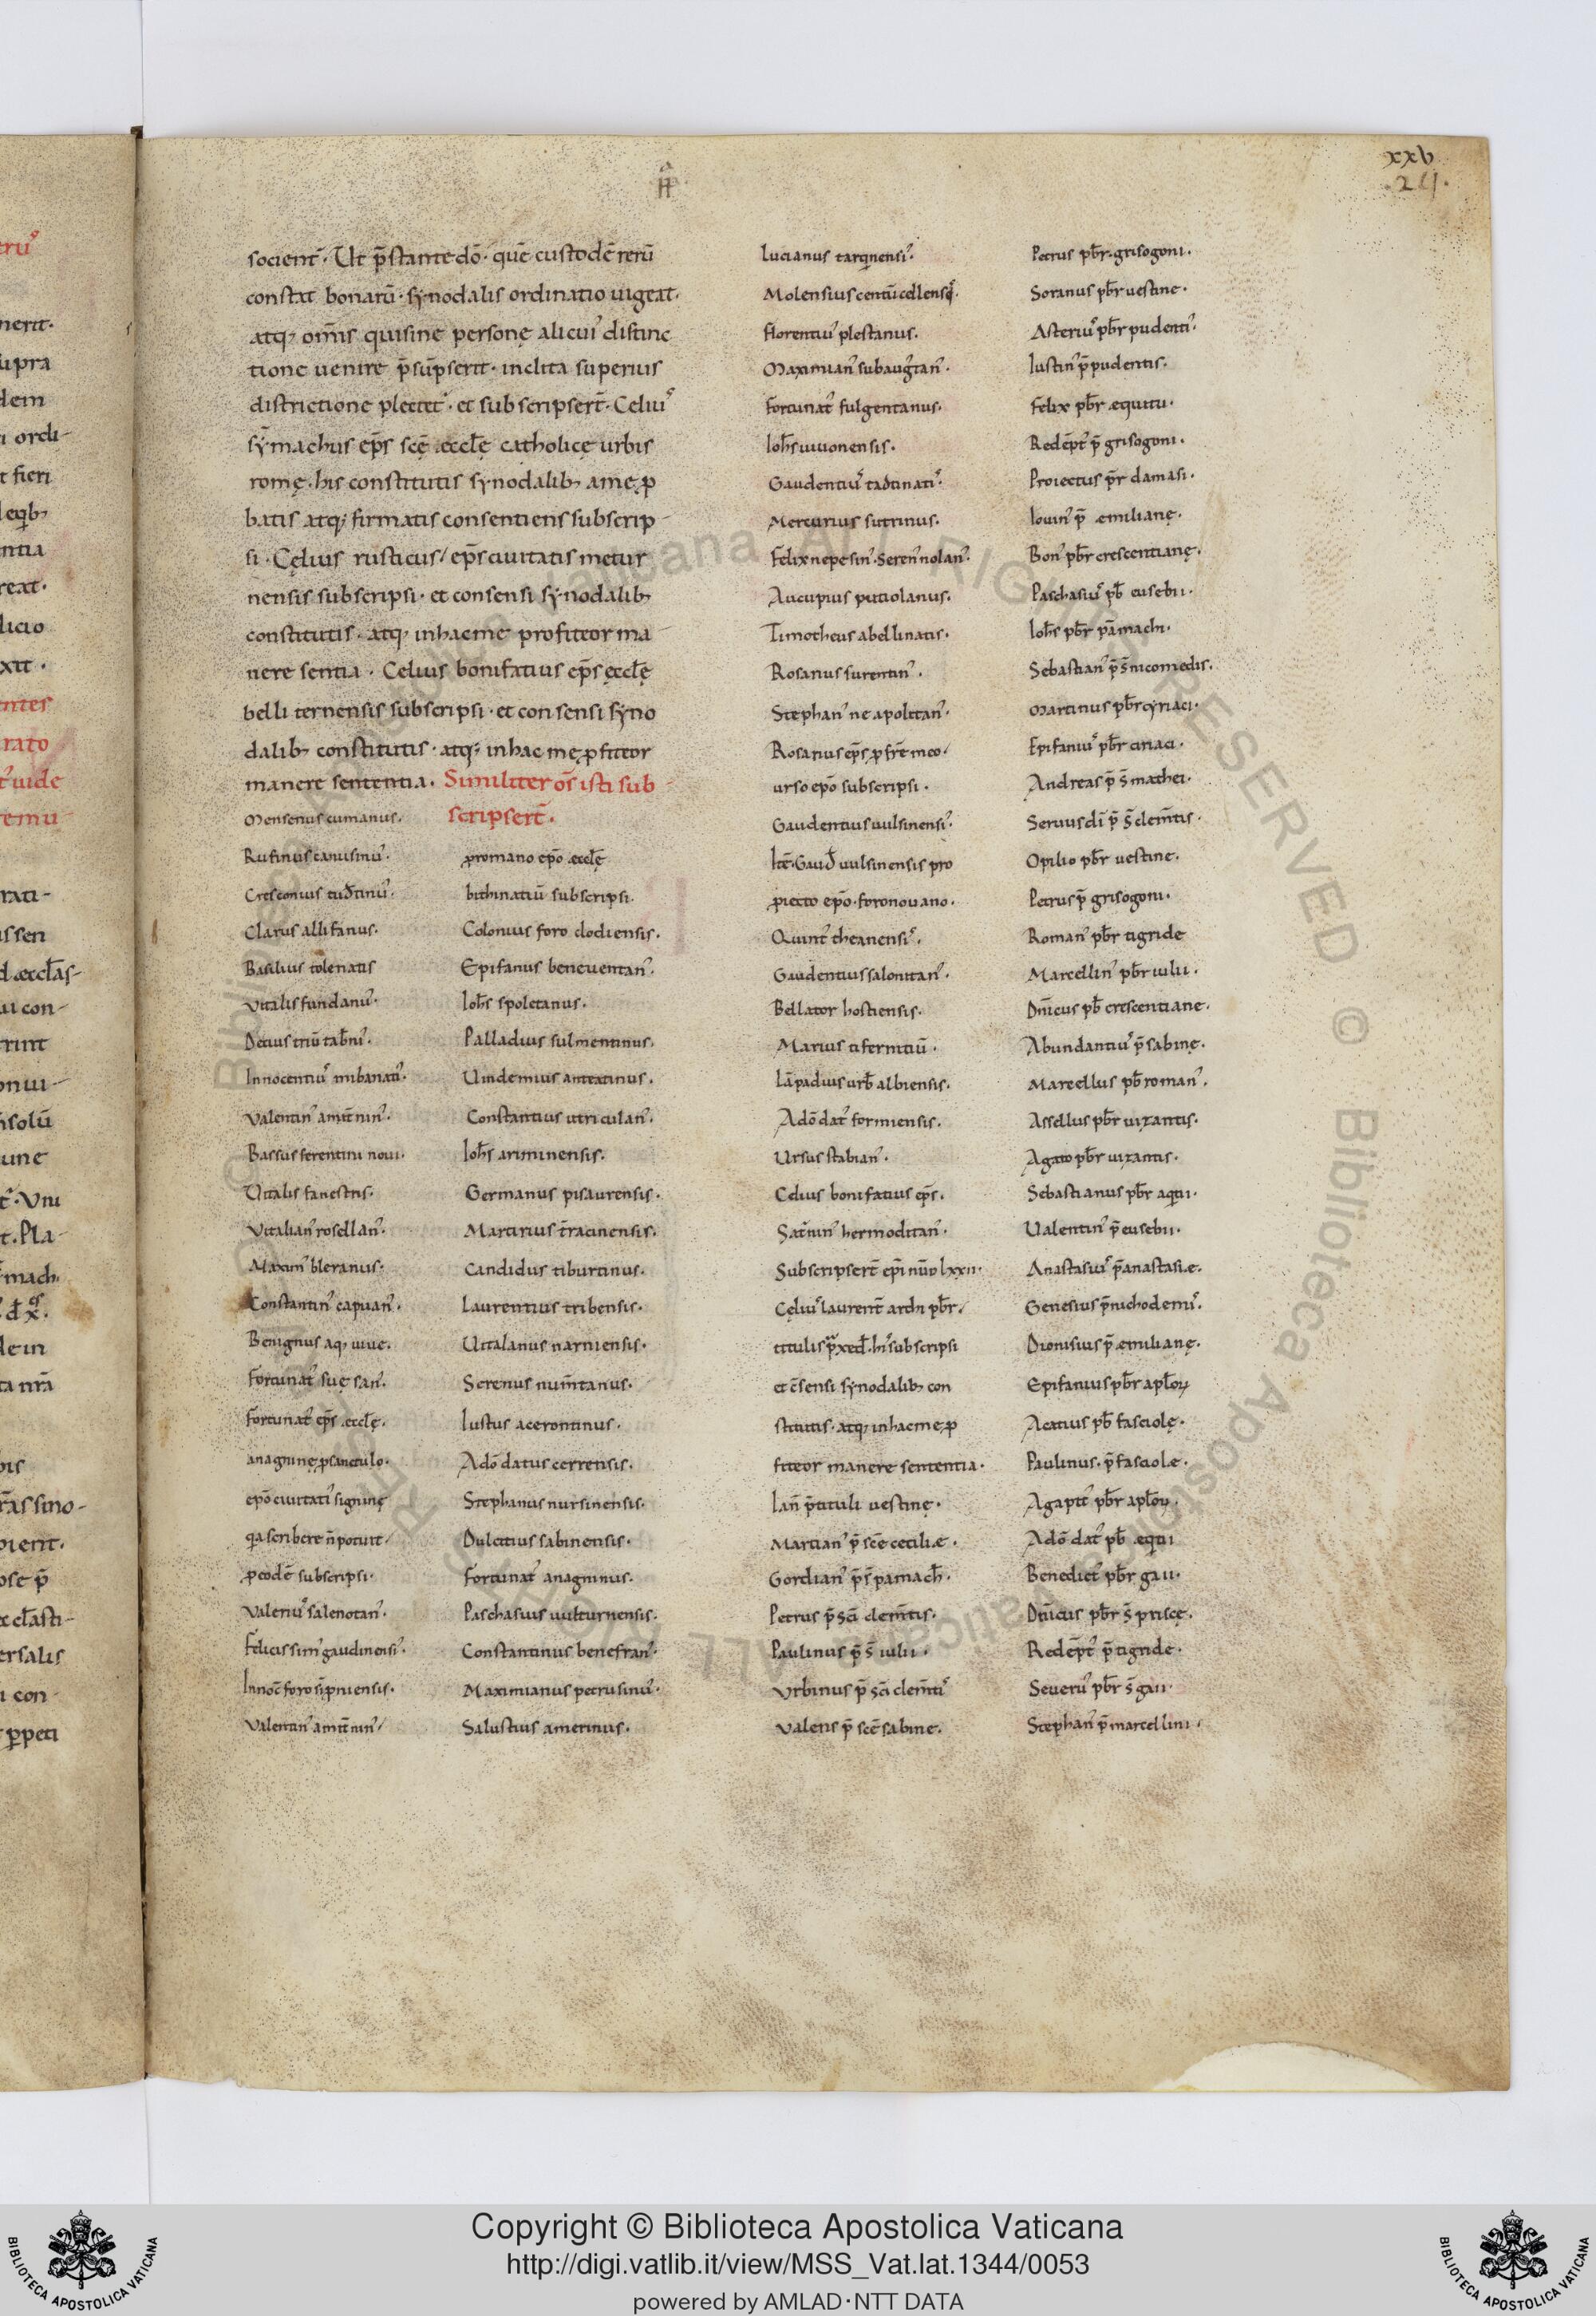 xxv
24.
socient̄· Ut p̄stante dō· quē custodē rerū
constat bonarū· synodalis ordinatio uigeat·
atq; om̄is quisine personę alicui᾽ distinc
tione uenire p̄sūpserit· inclita superius
districtione plectet᾽· et subscripsert̄· Celiu᾽
sȳmachus ep̄s scę æccłę catholicę urbis
romę· his constitutis synodalib; a me ꝓ
batis atq; firmatis consentiens subscrip-
si· Cęlius rusticus/ ep̄s ciuitatis metur
nensis subscripsi· et consensi synodalib;
constitutis· atq; inhac me profiteor ma-
nere sentia· Celius bonifatius ep̄s ęccłę
belli ternensis subscripsi· et consensi syno
dalib; constitutis· atq; inhac mę ꝓfiteor
manere sententia· Similiter os̄ isti sub-
scripsert̄·
Mensenus cumanus·
Rufinus canusinu᾽·
Cresconius tud̄tinu᾽·
Clarus allifanus·
Basilius tolenatis
Vitalis fundanu᾽·
Decius triū tab̄ni᾽·
Innocentiu᾽ mibanati᾽·
Valentin᾽ amit̄nin᾽·
Bassus ferentini noui·
Uitalis fanestris·
Vitalian᾽ rosellan᾽·
Maxim᾽ bleranus·
Constantin᾽ capuan᾽·
Benignus aq; uiue·
Fortunat᾽ suę san᾽·
Fortunat᾽ ep̄s æccłę·
anagninę ꝓ sanctulo·
epō ciuitati᾽ signinę
qa scribere n̄ potuit/
ꝓ eodē subscripsi·
Valeriu᾽ salenotan᾽·
Felicissim᾽ gaudinensi᾽·
Innoc̄ foro sip̄niensis·
Valentin᾽ amit̄nin᾽/
ꝓ romano epō æccłę
bithinatiū subscripsi·
Colonius foro clodiensis·
Epifanus beneuentan᾽·
Ioħs spoletanus·
Palladius sulmentinus·
Uindemius anteatinus·
Constantius utriculan᾽·
Ioħs ariminensis·
Germanus pisaurensis·
Martirius t̄racinensis·
Candidus tiburtinus·
Laurentius tribensis·
Uitalanus narniensis·
Serenus num̄tanus·
Iustus acerontinus·
Adōdatus cerrensis·
Stephanus nursinensis·
Dulcitius sabinensis·
Fortunat᾽ anagninus·
Paschasius uulturnensis·
Constantinus benefran᾽·
Maximianus petrusinu᾽·
Salustius amerinus·
Lucianus tarqinensi᾽·
Molensius centū cellensis·
Florentiu᾽ plestanus·
Maximian᾽ subaug̃tan᾽·
Fortunat᾽ fulgentanus·
Ioħs uiuonensis·
Gaudentiu᾽ tadinati᾽·
Mercurius sutrinus·
Felix nepesin᾽· Seren᾽ nolan᾽·
Aucupius puteolanus·
Timotheus abellinatis·
Rosanus surentin᾽·
Stephan᾽ neapolitan᾽·
Rosanus ep̄s ꝓ fr̄e meo/
urso epō subscripsi·
Gaudentius uulsinensi᾽·
Itē· Gaud̄ uulsinensis pro
ꝓiecto epō· foronouano·
Quint᾽ theanensi᾽·
Gaudentius salonitan᾽·
Bellator hostiensis·
Marius tifernitiū·
Lāpadius urb̄ albiensis·
Adōdat᾽ formiensis·
Ursus stabian᾽·
Celius bonifatius ep̄s·
Sat᾽nin᾽ hermoditan᾽·
Subscripsert̄ ep̄i nūo lxxii·
Cęliu᾽ laurent᾽ archi pb̄r/
tituli s p̄xed̄· hi᾽ subscripsi
et c̄sensi synodalib; con
stitutis· atq; inhac me ꝓ
fiteor manere sententia·
Ian̄ p̄ tituli uestinę·
Martian᾽ p̄ scē ceciliæ·
Gordian᾽ p̄ s̄ pamach̄·
Petrus p̄ sci clem̄tis·
Paulinus p̄ s̄ iulii·
Vrbinus p̄ sci clem̄ti᾽
Valens p̄ scē sabine·
Petrus pb̄r· grisogoni·
Soranus pb̄r uestine·
Asteriu᾽ pb̄r pudenti᾽·
Iustin᾽ p̄ pudentis·
Felix pb̄r equitii·
Redēpt᾽ p̄ grisogoni·
Proiectus p̄r damasi·
Iouin᾽ p̄ æmilianę·
Bon᾽ pb̄r crescentianę·
Paschasiu᾽ pb̄ eusebii·
Ioħs pb̄r pāmachi·
Sebastian᾽ p̄ s̄ nicomedis·
Martinus pb̄r cyriaci·
Epifaniu᾽ pb̄r ciriaci·
Andreas p̄ s̄ mathei·
Seruusdī p̄ s̄ clem̄tis·
Opilio pb̄r uestine·
Petrus p̄ grisogoni·
Roman᾽ pb̄r tigride
Marcellin᾽ pb̄r iulii·
Dn̄icus pb̄ crescentiane·
Abundantiu᾽ p̄ sabinę·
Marcellus pb̄ roman᾽·
Assellus pb̄r uizantis·
Agato pb̄r uizantis·
Sebastianus pb̄r aqitii·
Ualentin᾽ p̄ eusebii·
Anastasiu᾽ p̄ anastasie·
Genesius p̄ nichodemi᾽·
Dionisius p̄ æmilianę·
Epifanius pb̄r apłoꝝ
Acatius pb̄ fasciolę·
Paulinus· p̄ fasciolæ·
Agapit᾽ pb̄r apłoꝝ·
Adōdat᾽ pb̄ æqitii
Benedict᾽ pb̄r gaii·
Dn̄icus pb̄r s̄ priscę·
Redēpt᾽ p̄ tigride·
Seueru᾽ pb̄r s̄ gaii·
Stephan᾽ p̄ marcellini·
Copyright © Biblioteca Apostolica Vaticana
http://digi.vatlib.it/view/MSS_Vat.lat.1344/0053
powered by AMLAD·NTT DATA